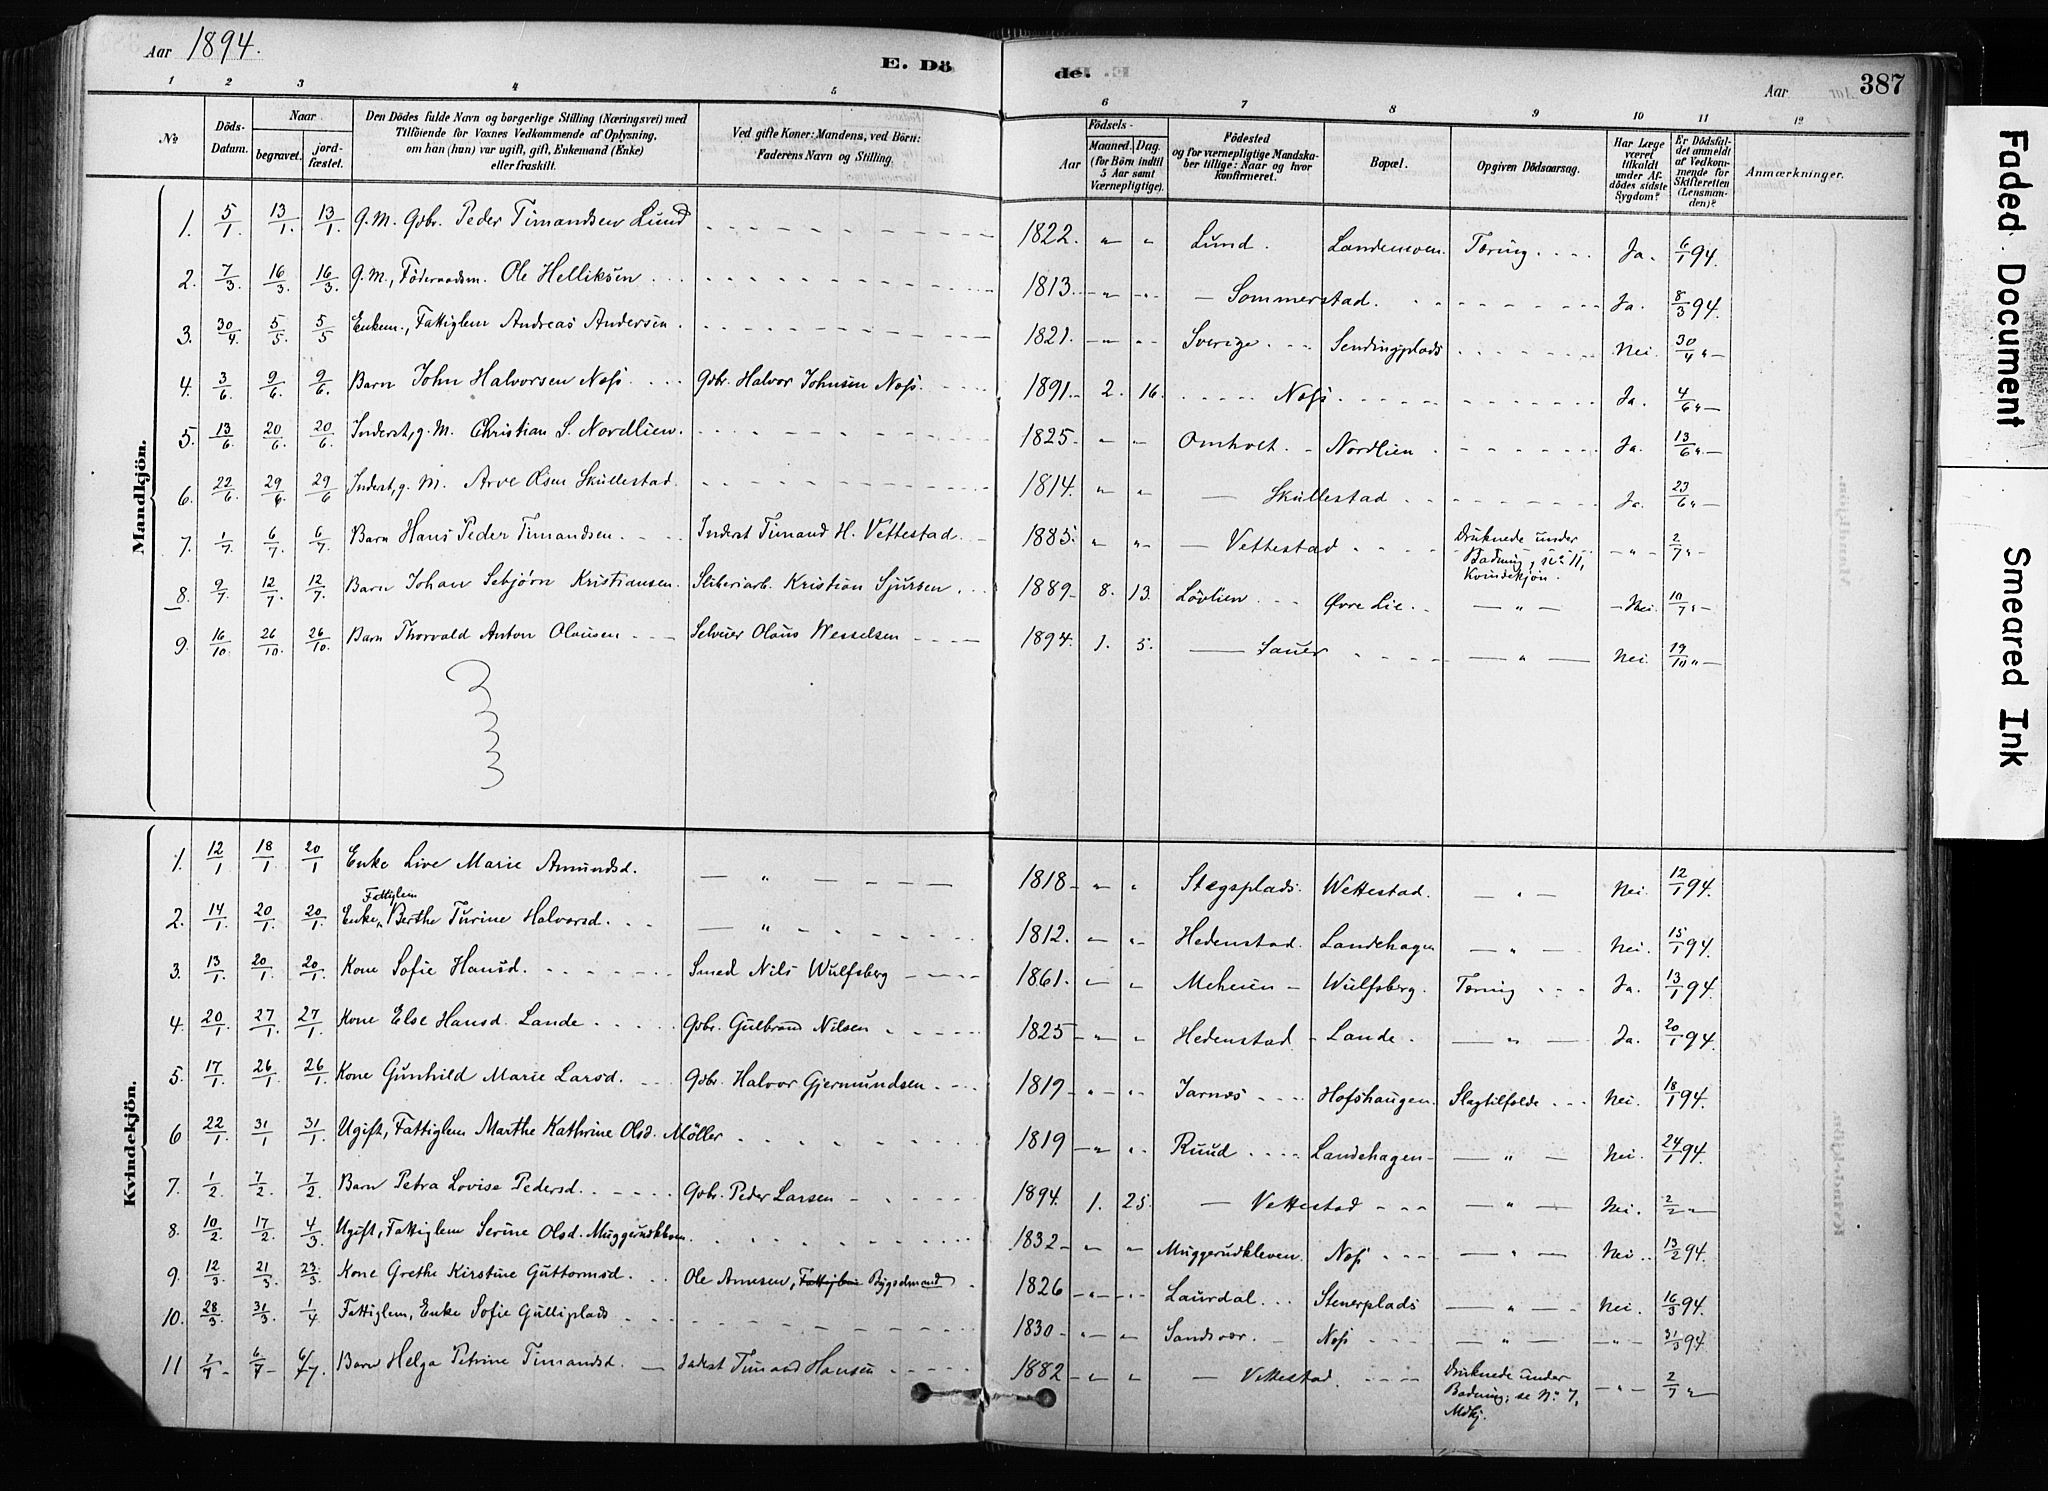 Aar 1894.
E. Döde.
Aar 387
1 2 3 4 5 6 7 8 9 10 11 12
No Döds-Datum. Naar begravet. jordfæstet. Den Dödes fulde Navn og borgerlige Stilling (Næringsvei) med Tilföiende for Voxnes Vedkommende af Oplysning, om han (hun) var ugift, gift, Enkemand (Enke) eller fraskilt. Ved gifte Koner: Mandens, ved Börn: Faderens Navn og Stilling. Födsels- Aar Maaned. Dag. (for Börn indtil 5 Aar samt Værnepligtige). Födested og for værnepligtige Mandskaber tillige: Naar og hvor konfirmeret. Bopæl. Opgiven Dödsaarsag. Har Læge været tilkaldt under Afdödes sidste Sygdom? Er Dödsfaldet anmeldt af Vedkommende for Skifteretten (Lensmanden)? Anmærkninger.
Mandkjön.
1. 5/1 13/1 13/1 G. M. Gbr. Peder Timandsen Lund 1822. " " Lund. Landemoen. Tæring. Ja. 6/1 94.
2. 7/3 16/3 16/3 G. M., Föderaadsm. Ole Helliksen 1813. " " Sommerstad. Ja. 8/3 94.
3. 30/4 5/5 5/5 Enkem., Fattiglem Andreas Andersen. 1821. " " Sverige Sendingplads Nei. 30/4 "
4. 3/6 9/6 9/6 Barn John Halvorsen Nofs. Gbr. Halvor Johnsen Nofs. 1891. 2. 16. Nofs. Ja. 4/6 "
5. 13/6 20/6 20/6 Inderst, g. M. Christian S. Nordlien. 1825 " " Omholt. Nordlien Ja. 13/6 "
6. 22/6 29/6 29/6 Inderst, g. M. Arve Olsen Skullestad. 1814. " " Skullestad Ja. 23/6 "
7. 1/7 6/7 6/7 Barn Hans Peder Timandsen. Inderst Timand H. Vettestad. 1885. " " Vettestad Druknede under Badning, se No 11, Kvindekjön. " 2/7 "
8. 9/7 12/7 12/7 Barn Johan Sebjørn Kristiansen. Sliberiarb. Kristian Sjursen. 1889 8. 13. Lövlien Øvre Lie. " Nei. 10/7 "
9. 16/10 26/10 26/10 Barn Thorvald Anton Olausen Selveier Olaus Wesselsen 1894. 1. 5. Sauer " Nei. 19/10 "
Kvindekjön.
1. 12/1 18/1 20/1 Enke Live Marie Amundsd. " 1818 " " Stegsplads. Wettestad. " Nei. 12/1 94.
2. 14/1 20/1 20/1 Enke, Fattiglem Berthe Turine Halvorsd. " 1812. " " Hedenstad. Landehagen " Nei. 15/1 94.
3. 13/1 20/1 20/1 Kone Sofie Hansd. Smed Nils Wulfsberg 1861. " " Meheien Wulfsberg. Tæring Ja. 13/1 94.
4. 20/1 27/1 27/1 Kone Else Hansd. Lande Gbr. Gulbrand Nilsen 1825 " " Hedenstad Lande. " Ja. 20/1 94.
5. 17/1 26/1 26/1 Kone Gunhild Marie Larsd. Gbr. Halvor Gjermundsen 1819 " " Jarnæs Hofshaugen. Slagtilfælde Nei. 18/1 94.
6 22/1 31/1 31/1 Ugift, Fattiglem Marthe Kathrine Olsd. Möller 1819 " " Ruud Landehagen " Nei. 24/1 94.
7. 1/2 7/2 7/2 Barn Petra Lovise Pedersd. Gbr. Peder Larsen 1894. 1. 25. Vettestad " Nei. 2/2 "
8. 10/2 17/2 4/3 Ugift, Fattiglem Serine Olsd. Muggerudkleven. 1832 " " Muggerudkleven. Nofs " Nei. 13/2 94.
9. 12/3 21/3 23/3 Kone Grethe Kirstine Guttormsd. Ole Arnesen, Fattiglem Bygselmand 1826 " " Laurdal Stenerplads " Nei. 16/3 94.
10. 28/3 31/3 1/4 Fattiglem, Enke Sofie Gulliplads 1830 " " Sandsvær. Nofs " " 31/3 94.
11 2/7 6/7 6/7. Barn Helga Petrine Timandsd. Inderst Timand Hansen 1882 " " Vettestad. Druknede under Badning, se No 7, Mdkj. " 2/7 "
Faded Document
Smeared Ink